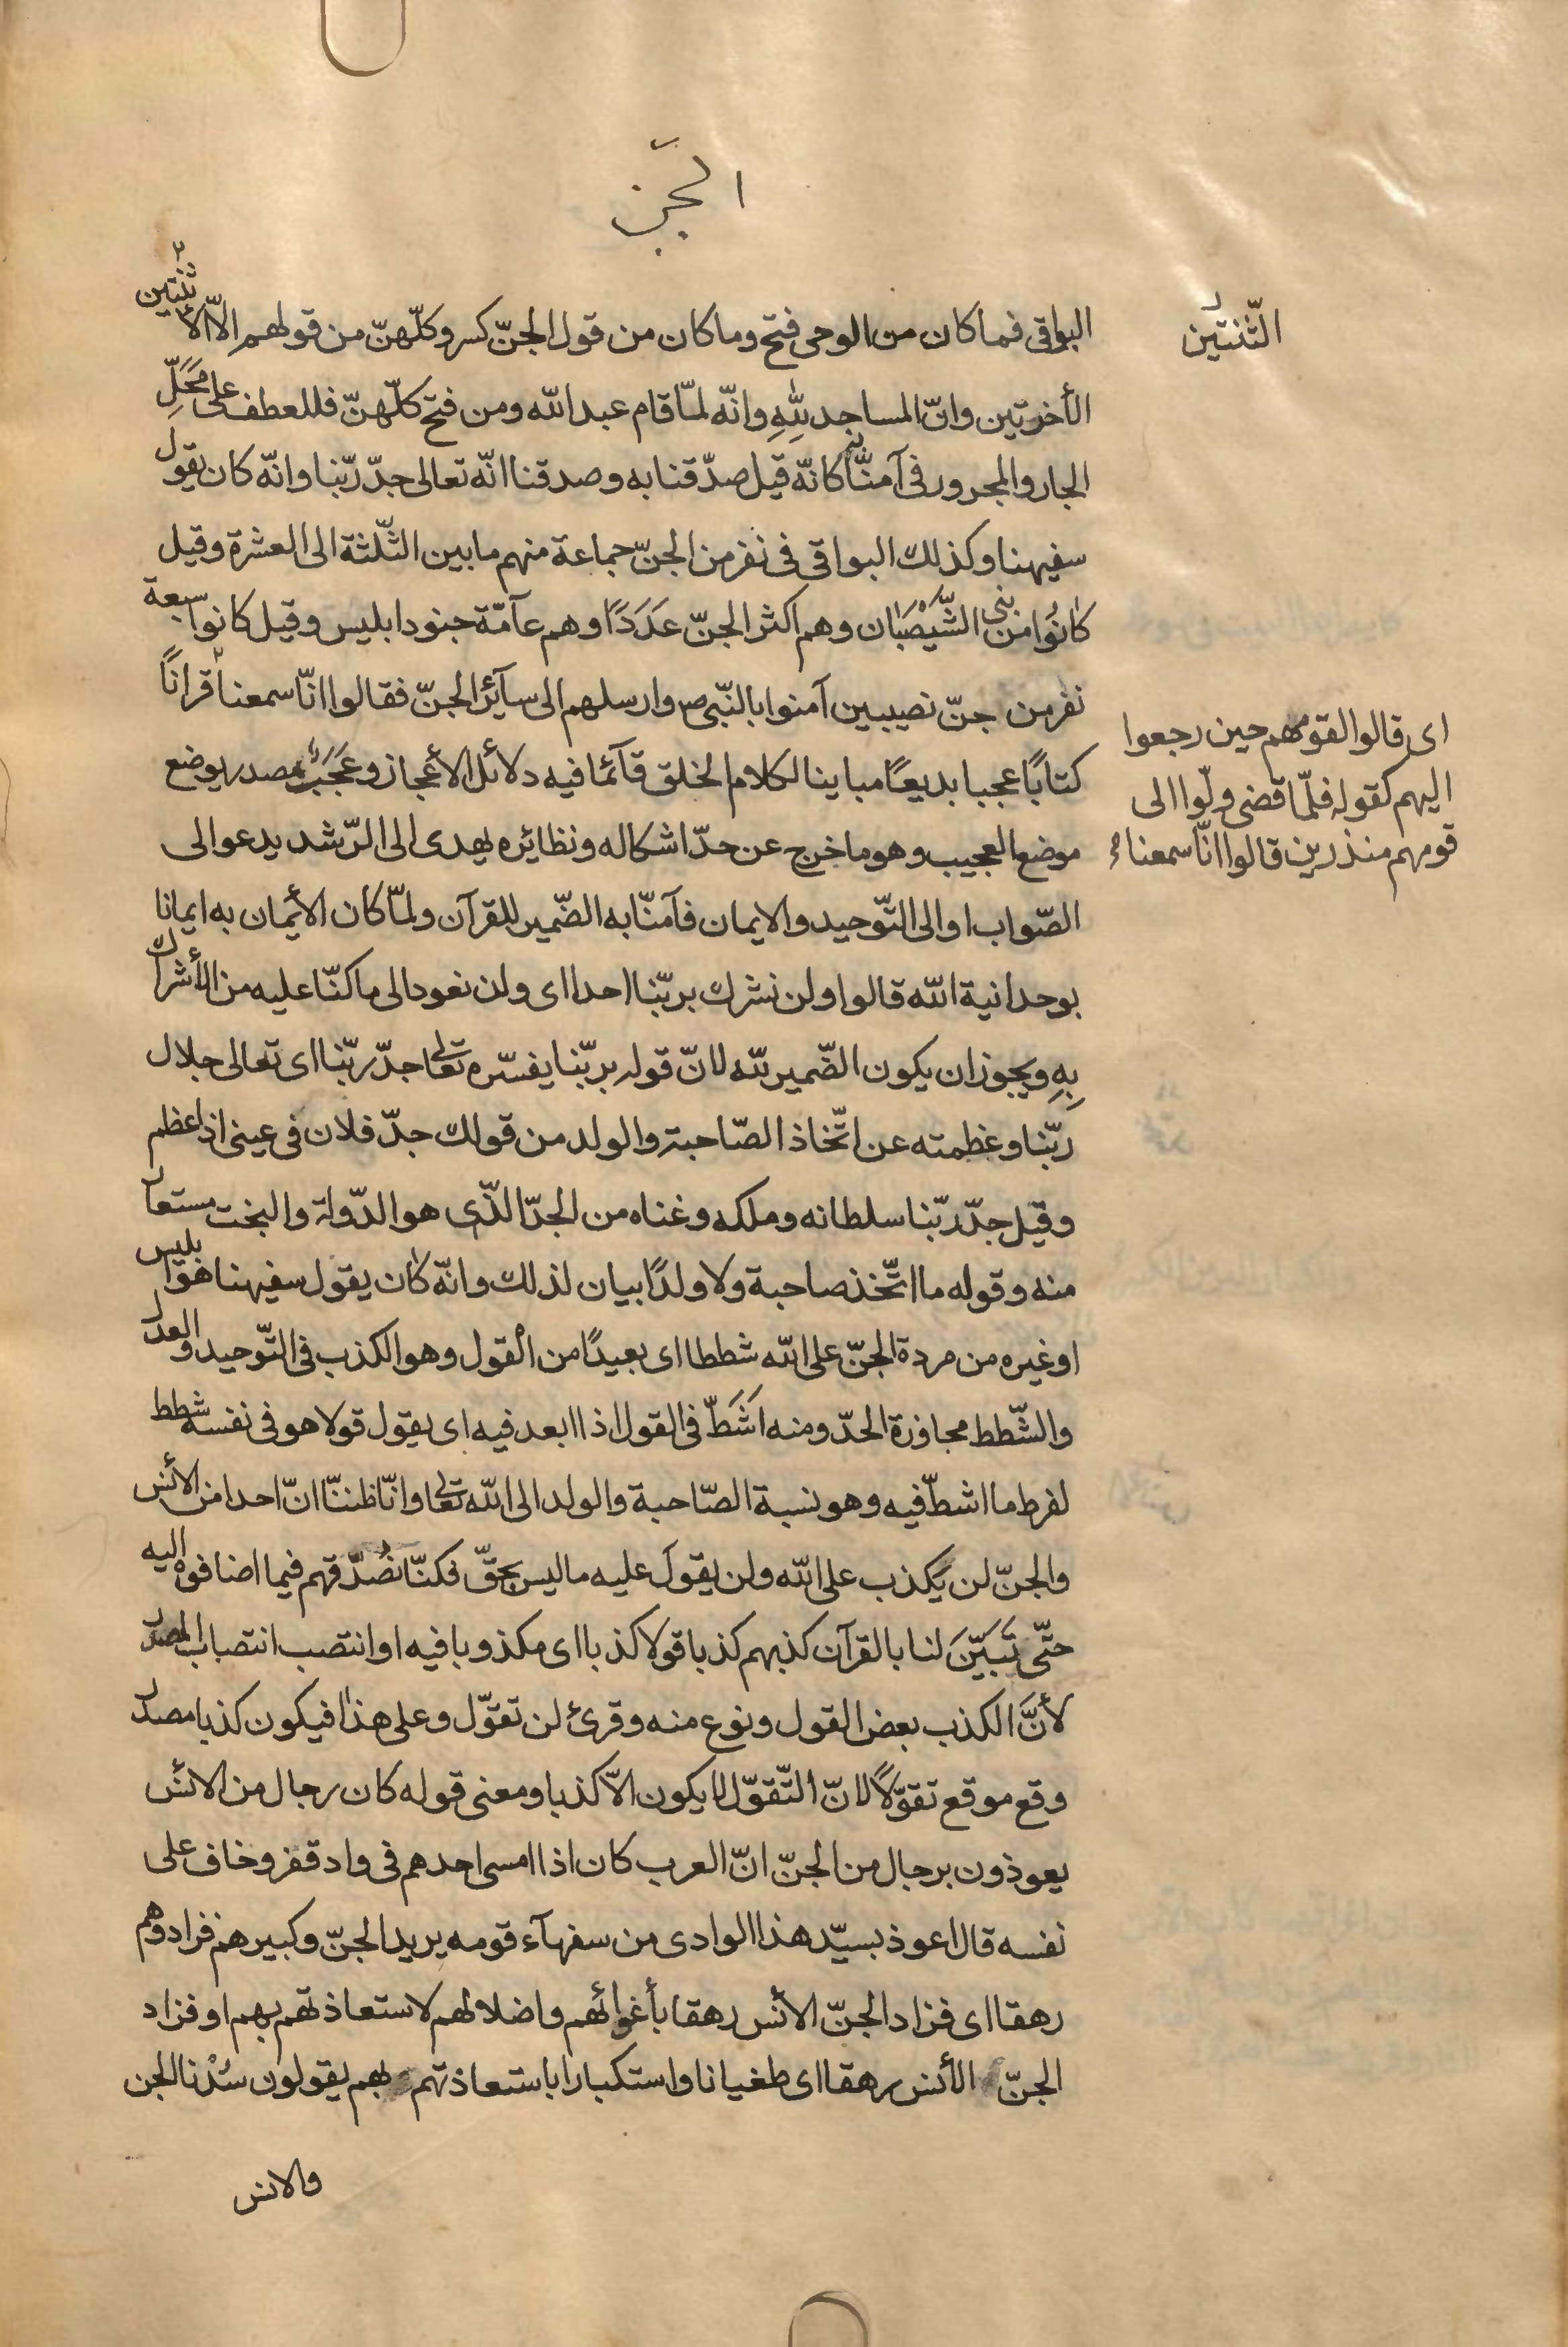 الجنّ
البواقى فما كان من الوحى فتح وما كان من قول الجنّ كسر وكلّهنّ من قولهم الّا الّا ثنتين
الثّنتين
الأخريتين وانّ المساجد للهِ وانّه لمّا قام عبد الله ومن فتح كلّهنّ فللعطف على مَحَلِّ
الجار والمجرور فى آمنّا به كانّه قيل صدّقنا به وصدقنا انّه تعالى جدّ ربّنا وانّه كان يقول
سفيهنا وكذلك البواقى فى نفر من الجنّ جماعة منهم ما بين الثّلثة الى العشرة وقيل
كانُوا من بنى الشَّيْصَبَان وهم اكثر الجنّ عَدَدًا وهم عآمّة جنود ابليس وقيل كانوا سبعة
نفر من جنّ نصيبين آمنوا بالنّبى ص وارسلهم الى سآئر الجنّ فقالوا انّا سمعنا قرانًا
اى قالوا لقومهم حين رجعوا
اليهم كقوله فلمّا قضى ولّوا الى
قومهم منذرين قالوا انّا سمعنا
كتابًا عجبا بديعًا مباينا لكلام الخلق قآئما فيه دلائل الأعجاز وعَجَبٌ مصدر يوضع
موضع العجيب وهو ما خرج عن حدّ اشكاله ونظائره يهدى الى الرّشد يدعو الى
الصّواب او الى التّوحيد والايمان فآمنّا به الضّمير للقرآن ولمّا كان الأيمان به ايمانا
بوحدانية الله قالوا ولن نشرك بربّنا احدا اى ولن نعود الى ما كنّا عليه من الأشراك
بِهِ ويجوز ان يكون الضّمير لله لانّ قوله بربّنا يفسّره تعالى جدّ ربّنا اى تعالى جلال
ربّنا وعظمته عن اتّخاذ الصّاحبة والولد من قولك جدّ فلان فى عينى اذا عظم
وقيل جدّ ربّنا سلطانه وملكه وغناه من الجدّ الّذى هو الدّولة والبخت مستعار
منه وقوله ما اتّخذ صاحبة ولا ولدًا بيان لذلك وانّه كان يقول سفيهنا هو ابليس
او غيره من مردة الجنّ على الله شططا اى بعيدًا من القول وهو الكذب فى التّوحيد والعدل
والشّطط مجاوزة الحدّ ومنه اَشَطَّ فى القول اذا ابعد فيه اى يقول قولا هو فى نفسه شطط
لفرط ما اشطّ فيه وهو نسبة الصّاحبة والولد الى الله تعالى وانّا ظننّا انّ احدا من الأنس
والجنّ لن يَكذب على الله ولن يقول عليه ما ليس بحقّ فكنّا نُصَدّقهم فيما اضافوه اليه
حتّى تَبَيَّنَ لنا بالقرآن كذبهم كذبا قولا كذبا اى مكذوبا فيه او انتصب انتصاب المصدر
لأنَّ الكذب بعض القول ونوع منه وقرئ لن تقوّل وعلى هذا فيكون كذبا مصدر
وقع موقع تقوّلًا لانّ التّقوّل لا يكون الّا كذبا ومعنى قوله كان رجال من الانس
يعوذون برجال من الجنّ انّ العرب كان اذا امسى احدهم فى واد قفر وخاف على
نفسه قال اعوذ بسيّد هذا الوادى من سفهآء قومه يريد الجنّ وكبيرهم فزادوهم
رهقا اى فزاد الجنّ الأنس رهقا بأغوائهم واضلالهم لاستعاذتهم بهم او فزاد
الجنّ الأنس رهقا اى طغيانا واستكبارا باستعاذتهم بهم يقولون سُدْنا الجن
والانس